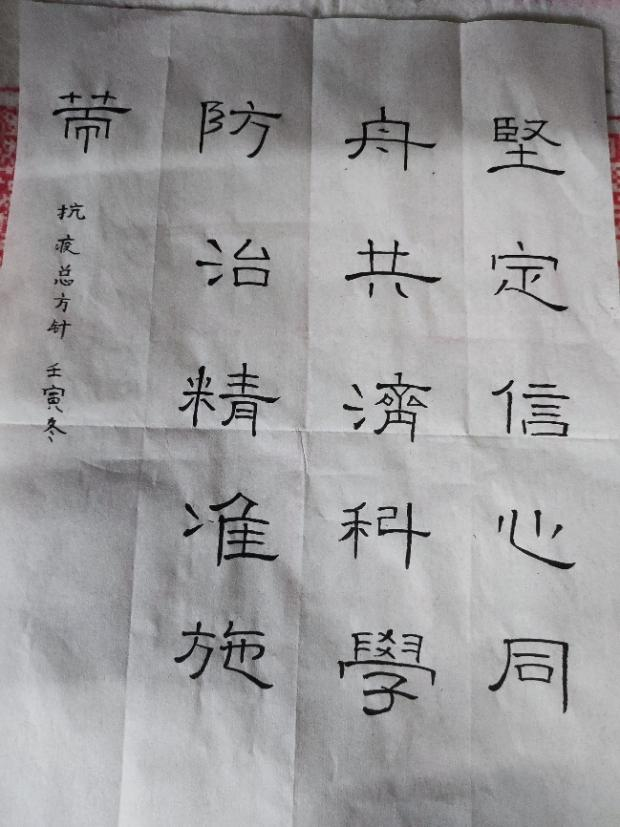 堅定信心同
舟共濟科學
防治精准施
策
抗疫总方针 壬寅冬